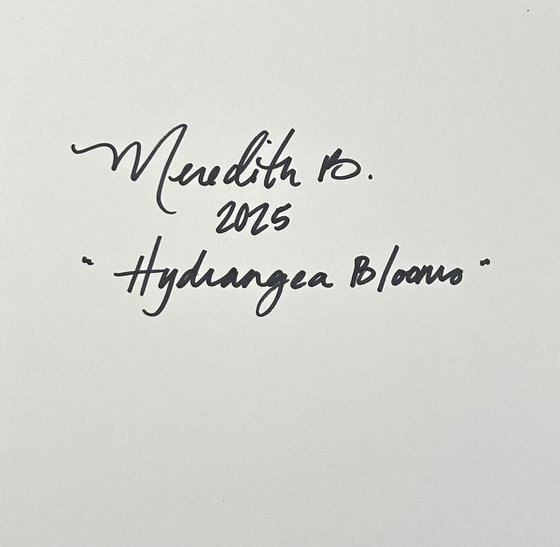 Meredith B.
2025
"Hydrangea Blooms"